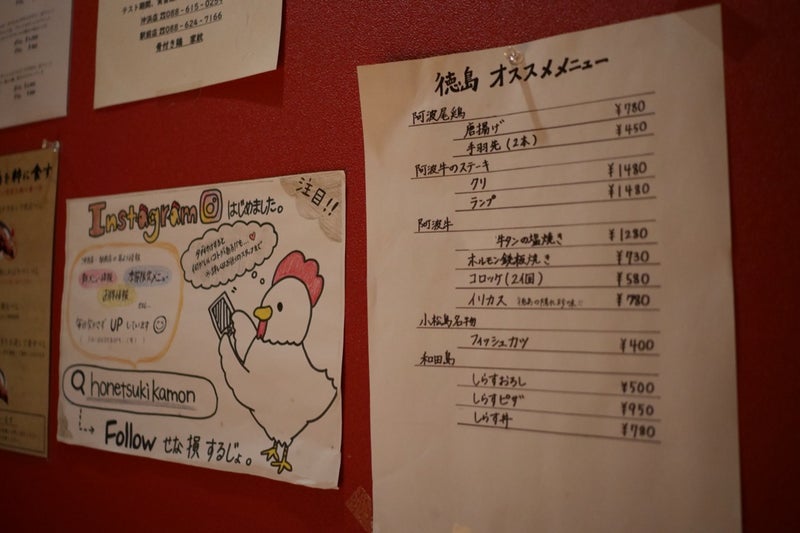 沖浜店 ☎088-615-0251
駅前店 ☎088-624-7166
骨付き鶏 家紋
Instagram はじめました。
注目!!
新メニュー情報 季節限定メニュー
店休情報
etc...
毎日欠かさず UP しています
honetsukikamon
Follow せな損するじょ。
徳島 オススメメニュー
阿波尾鶏
唐揚げ ¥780
手羽先(2本) ¥450
阿波牛のステーキ
クリ ¥1480
ランプ ¥1480
阿波牛
牛タンの塩焼き ¥1280
ホルモン鉄板焼き ¥730
コロッケ(2個) ¥580
イリカス ¥780
小松島名物
フィッシュカツ ¥400
和田島
しらすおろし ¥500
しらすピザ ¥950
しらす丼 ¥780